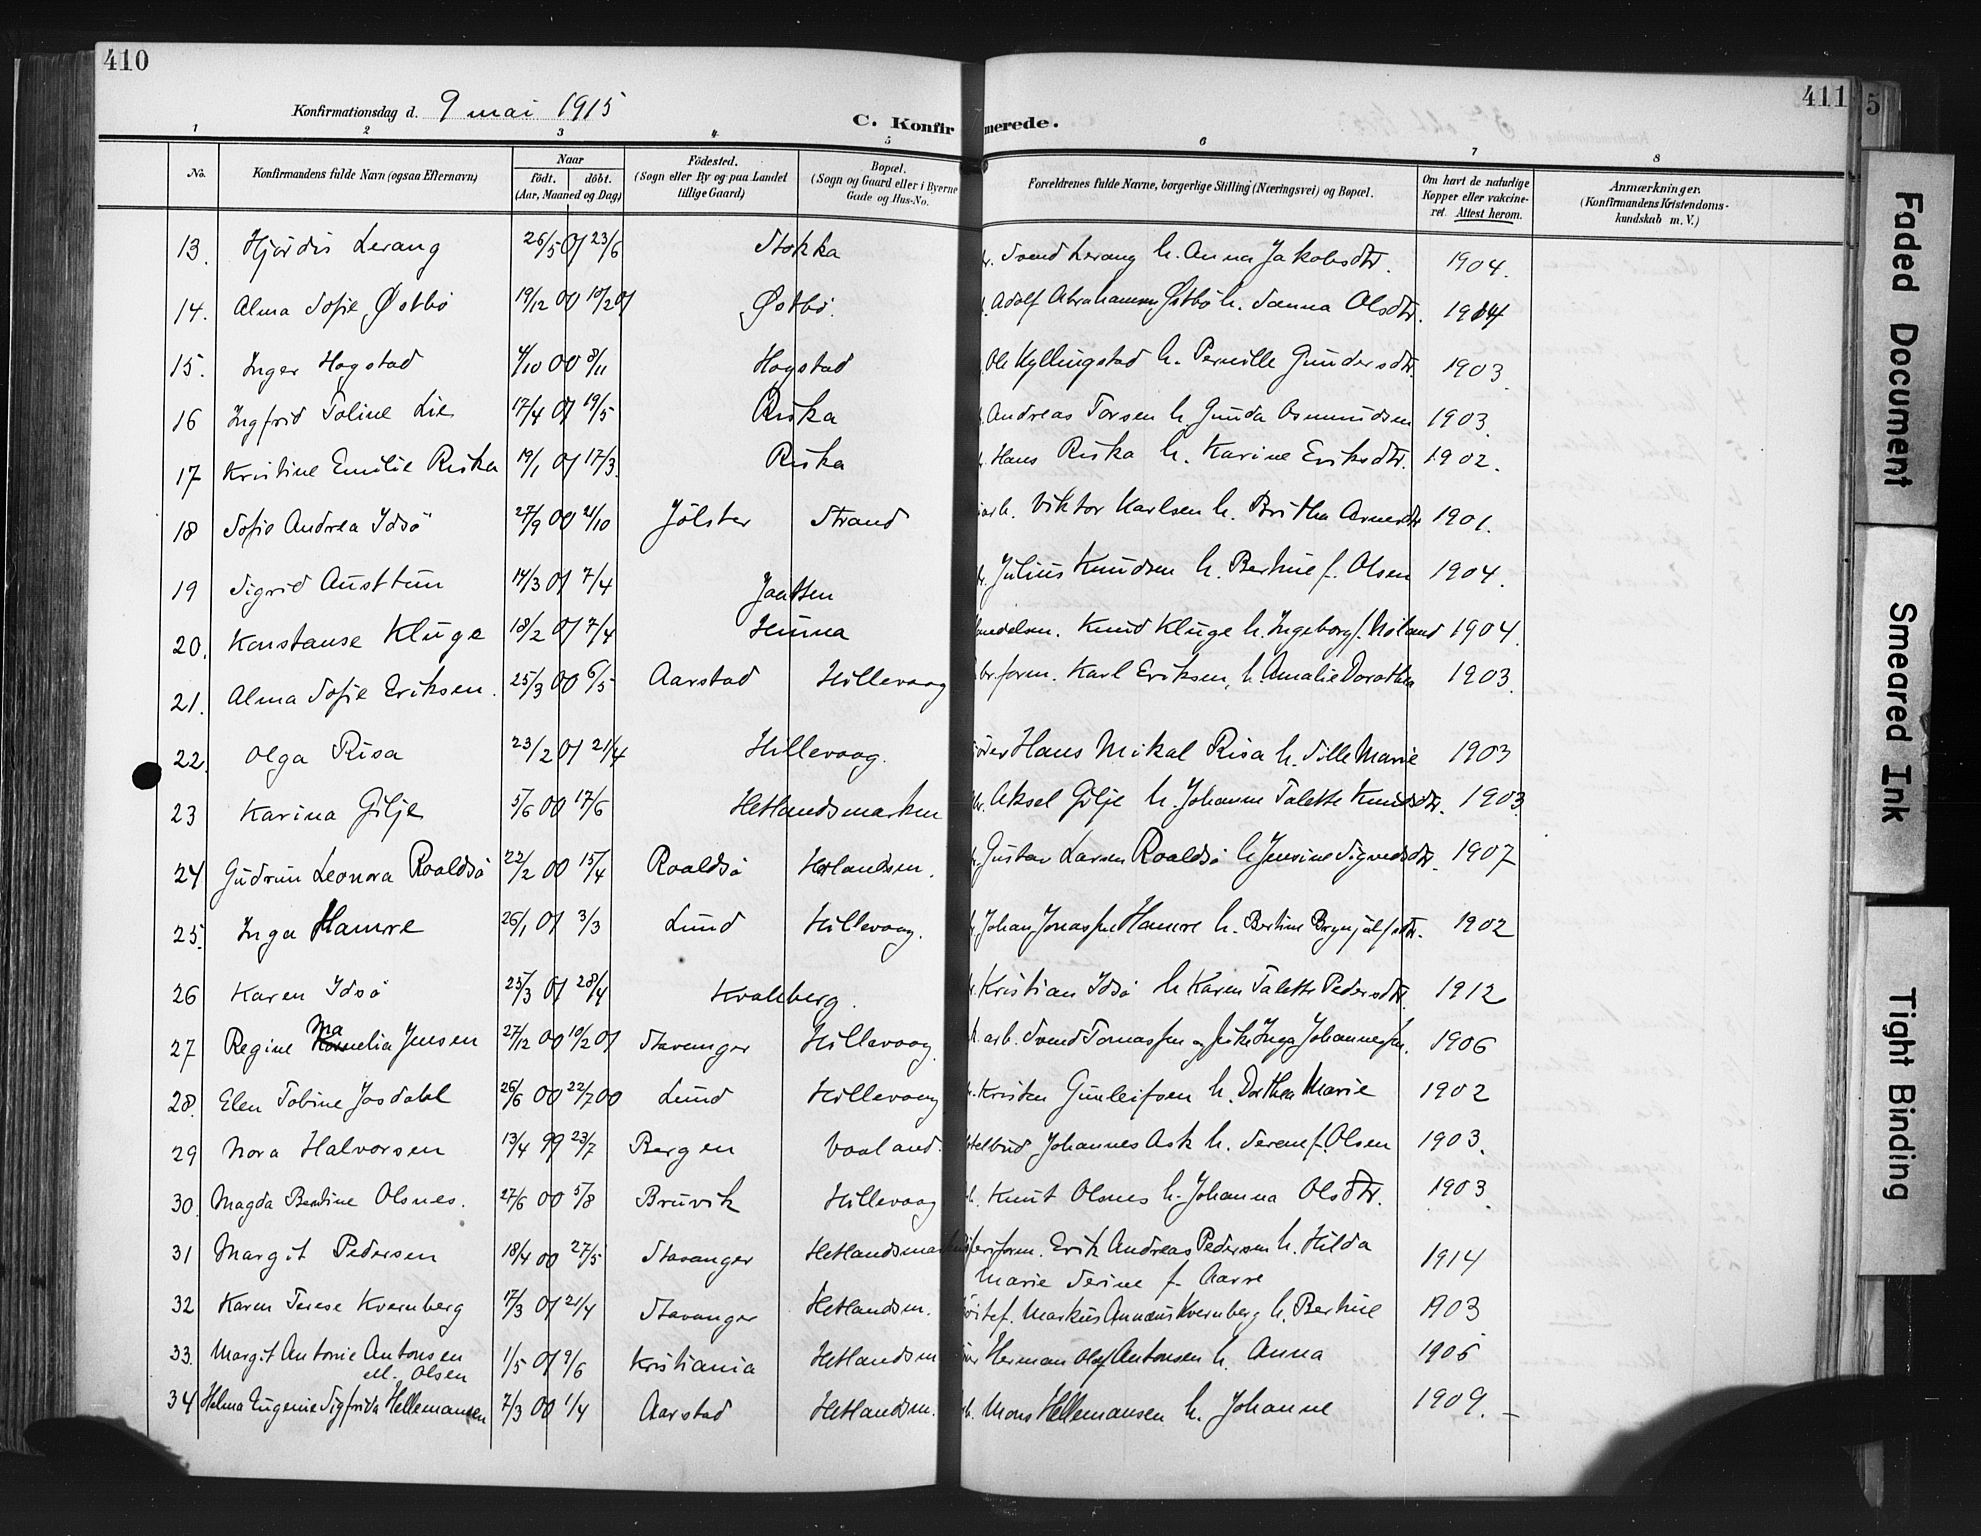 410
411
5
Konfirmationsdag d. 9 mai 1915
C. Konfirmerede.
1 2 3 4 5 6 7 8
No.
Konfirmandens fulde Navn (ogsaa Efternavn)
Naar
født. døbt.
(Aar, Maaned og Dag)
Fødested.
(Sogn eller By og paa Landet
tillige Gaard)
Bopæl.
(Sogn og Gaard eller i Byerne
Gade og Hus-No.
Forældrenes fulde Navne, borgerlige Stilling (Næringsvei) og Bopæl.
Om havt de naturlige
Kopper eller vakcine-
ret. Attest herom.
Anmærkninger.
(Konfirmandens Kristendoms-
kundskab m. V.)
13. Hjördis Lerang 26/5 01 23/6 Stokka Svend Lerang h. Anna Jakobsdtr. 1904.
14. Alma Sofie Østbö 19/12 00 10/2 01 Østbö. Adolf Abrahamsen Østbö h. Sanna Olsdtr. 1904
15. Inger Hogstad 4/10 00 8/11 Hogstad Ole Kyllingstad h. Pernille Gundersdtr. 1903.
16 Ingfrid Toline Lie 17/4 01 19/5 Riska Andreas Torsen h. Gunda Asmundsen 1903.
17 Kristine Emilie Riska 19/1 01 17/3. Riska Hans Riska h. Karine Eriksdtr. 1902.
18 Sofie Andrea Idsö 27/9 00 21/10 Jölster Strand arb. Viktor Karlsen h. Britha Arnesdtr 1901.
19 Sigrid Austtun 14/3 01 7/4 Jaatten Julius Knudsen h. Bertine f. Olsen 1904.
20. Konstanse Kluge 18/2 01 7/4 Hinna handelsm. Knud Kluge h. Ingeborg f. Nöland 1904.
21. Alma Sofie Eriksen. 25/3 00 6/5 Aarstad Hillevaag form. Karl Eriksen, h. Amalie Dorothea 1903.
22. Olga Risa 23/2 01 21/4 Hillevaag. Hans Mikal Risa h. Sille Marie 1903
23 Karina Gilje 5/6 00 17/6 Hetlandsmarken Aksel Gilje h. Johanne Talette Knudsdtr. 1903
24 Gudrun Leonora Roaldsö 22/2 00 15/4 Roaldsö Hetlandsm. Gustav Larsen Roaldsö h. Jensine Sigvedsdtr. 1907
25. Inga Hamre 26/1 01 3/3 Lund Hillevaag. Johan Jonassen Hamre h. Bertine Brynjulfsdtr. 1902
26 Karen Idsö 23/3 01 28/4 Kvaleberg. Kristian Idsö h. Karen Talette Pedersdtr. 1912
27 Regine Ma Kornelia Jensen 27/12 00 10/2 01 Stavanger Hillevaag. arb. Svend Tomassen og pike Inga Johannessen. 1906
28. Elen Tobine Josdahl 26/6 00 22/7 00 Lund Hillevaag Kristen Gunleifsen h. Dorthea Marie 1902
29 Nora Halvorsen 13/4 99 23/7 Bergen Vaaland. Johannes Ask h. Serene f. Olsen 1903.
30. Magda Bentine Olsnes. 27/6 00 5/8 Bruvik Hillevaag Knut Olsnes h. Johanna Olsdtr. 1903.
31 Margit Pedersen 18/4 00 27/5 Stavanger Hetlandsmarken form. Erik Andreas Pedersen h. Hilda
Marie Serine f. Aarre 1914
32 Karen Terese Kvernberg 17/3 01 21/4 Stavanger Hetlandsm. Markus Annæus Kvernberg h. Bertine 1903
33. Margit Antonie Antonsen
ell. Olsen 1/5 01 9/6 Kristiania Hetlandsm Herman Olaf Antonsen h. Anna 1905
34 Helma Eugenie Sigfrida Hellemansen 7/3 00 1/4 Aarstad Hetlandsm. Mons Hellemansen h. Johanne 1909.
Faded Document
Smeared Ink
Tight Binding